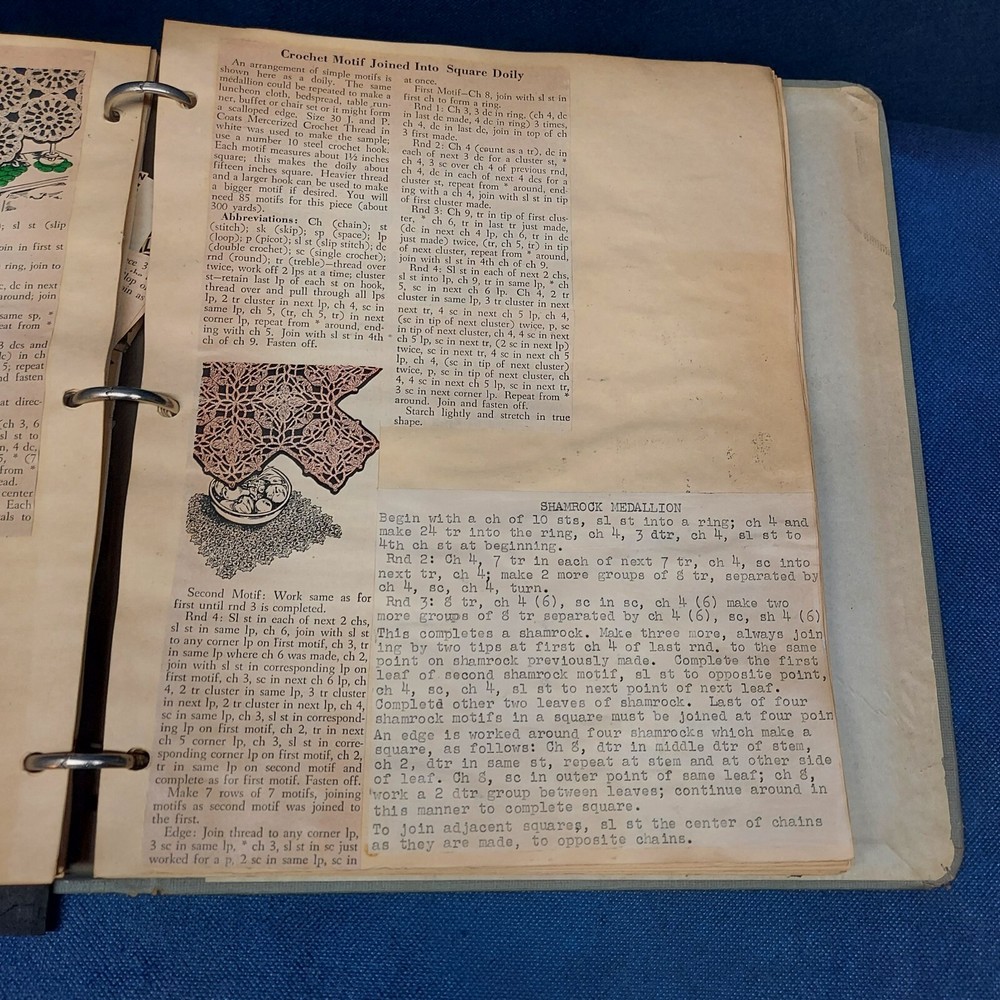 ; sl st (slip
oin in first st
ring, join to
c, dc in next
around; join
same sp, *
eat from *
3 dcs and
c) in ch
5; repeat
nd fasten
at direc-
(ch 3, 6
sl st to
n, 4 dc,
5, * (7
from *
ead.
center
Each
als to
Crochet Motif Joined Into Square Doily
An arrangement of simple motifs is
shown here as a doily. The same
medallion could be repeated to make a
luncheon cloth, bedspread, table run-
ner, buffet or chair set or it might form
a scalloped edge. Size 30 J. and P.
Coats Mercerized Crochet Thread in
white was used to make the sample;
use a number 10 steel crochet hook.
Each motif measures about 1½ inches
square; this makes the doily about
fifteen inches square. Heavier thread
and a larger hook can be used to make
a bigger motif if desired. You will
need 85 motifs for this piece (about
300 yards).
Abbreviations: Ch (chain); st
(stitch); sk (skip); sp (space); lp
(loop); p (picot); sl st (slip stitch); dc
(double crochet); sc (single crochet);
rnd (round); tr (treble)—thread over
twice, work off 2 lps at a time; cluster
st—retain last lp of each st on hook,
thread over and pull through all lps
lp, 2 tr cluster in next lp, ch 4, sc in
same lp, ch 5, (tr, ch 5, tr) in next
corner lp, repeat from * around, end-
ing with ch 5. Join with sl st in 4th
ch of ch 9. Fasten off.
Second Motif: Work same as for
first until rnd 3 is completed.
Rnd 4: Sl st in each of next 2 chs,
sl st in same lp, ch 6, join with sl st
to any corner lp on first motif, ch 3, tr
in same lp where ch 6 was made, ch 2,
join with sl st in corresponding lp on
first motif, ch 3, sc in next ch 6 lp, ch
4, 2 tr cluster in same lp, 3 tr cluster
in next lp, 2 tr cluster in next lp, ch 4,
sc in same lp, ch 3, sl st in correspond-
ing lp on first motif, ch 2, tr in next
ch 5 corner lp, ch 3, sl st in corre-
sponding corner lp on first motif, ch 2,
tr in same lp on second motif and
complete as for first motif. Fasten off.
Make 7 rows of 7 motifs, joining
motifs as second motif was joined to
the first.
Edge: Join thread to any corner lp,
3 sc in same lp, * ch 3, sl st in sc just
worked for a p, 2 sc in same lp, sc in
at once.
First Motif—Ch 8, join with sl st in
first ch to form a ring.
Rnd 1: Ch 3, 3 dc in ring, (ch 4, dc
in last dc made, 4 dc in ring) 3 times,
ch 4, dc in last dc, join in top of ch
3 first made.
Rnd 2: Ch 4 (count as a tr), dc in
each of next 3 dc for a cluster st, *
ch 4, 3 sc over ch 4 of previous rnd,
ch 4, dc in each of next 4 dcs for a
cluster st, repeat from * around, end-
ing with a ch 4, join with sl st in tip
of first cluster made.
Rnd 3: Ch 9, tr in tip of first clus-
ter, * ch 6, tr in last tr just made,
(dc in next ch 4 lp, ch 6, tr in dc
just made) twice, (tr, ch 5, tr) in tip
of next cluster, repeat from * around,
join with sl st in 4th ch of ch 9.
Rnd 4: Sl st in each of next 2 chs,
sl st into lp, ch 9, tr in same lp, * ch
5, sc in next 6 lp. Ch 4, 2 tr
cluster in same lp, 3 tr cluster in next
next tr, 4 sc in next ch 5 lp, ch 4,
(sc in tip of next cluster) twice, p, sc
in tip of next cluster, ch 4, 4 sc in next
ch 5 lp, sc in next tr, (2 sc in next lp)
twice, sc in next tr, 4 sc in next ch 5
lp, ch 4, (sc in tip of next cluster)
twice, p, sc in tip of next cluster, ch
4, 4 sc in next ch 5 lp, sc in next tr,
3 sc in next corner lp. Repeat from *
around. Join and fasten off.
Starch lightly and stretch in true
shape.
SHAMROCK MEDALLION
Begin with a ch of 10 sts, sl st into a ring; ch 4 and
make 24 tr into the ring, ch 4, 3 dtr, ch 4, sl st to
4th ch st at beginning.
Rnd 2: Ch 4, 7 tr in each of next 7 tr, ch 4, sc into
next tr, ch 4; make 2 more groups of 8 tr, separated by
ch 4, sc, ch 4, turn.
Rnd 3: 8 tr, ch 4 (6), sc in sc, ch 4 (6) make two
more groups of 8 tr separated by ch 4 (6), sc, sh 4 (6)
This completes a shamrock. Make three more, always join
ing by two tips at first ch 4 of last rnd. to the same
point on shamrock previously made. Complete the first
leaf of second shamrock motif, sl st to opposite point,
ch 4, sc, ch 4, sl st to next point of next leaf.
Completd other two leaves of shamrock. Last of four
shamrock motifs in a square must be joined at four poin
An edge is worked around four shamrocks which make a
square, as follows: Ch 8, dtr in middle dtr of stem,
ch 2, dtr in same st, repeat at stem and at other side
of leaf. Ch 8, sc in outer point of same leaf; ch 8,
work a 2 dtr group between leaves; continue around in
this manner to complete square.
To join adjacent squares, sl st the center of chains
as they are made, to opposite chains.